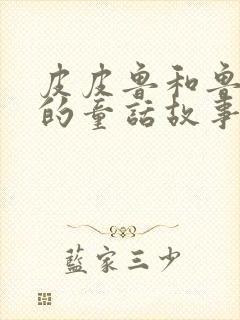 皮皮魯和魯
的童話故事
藍家三少